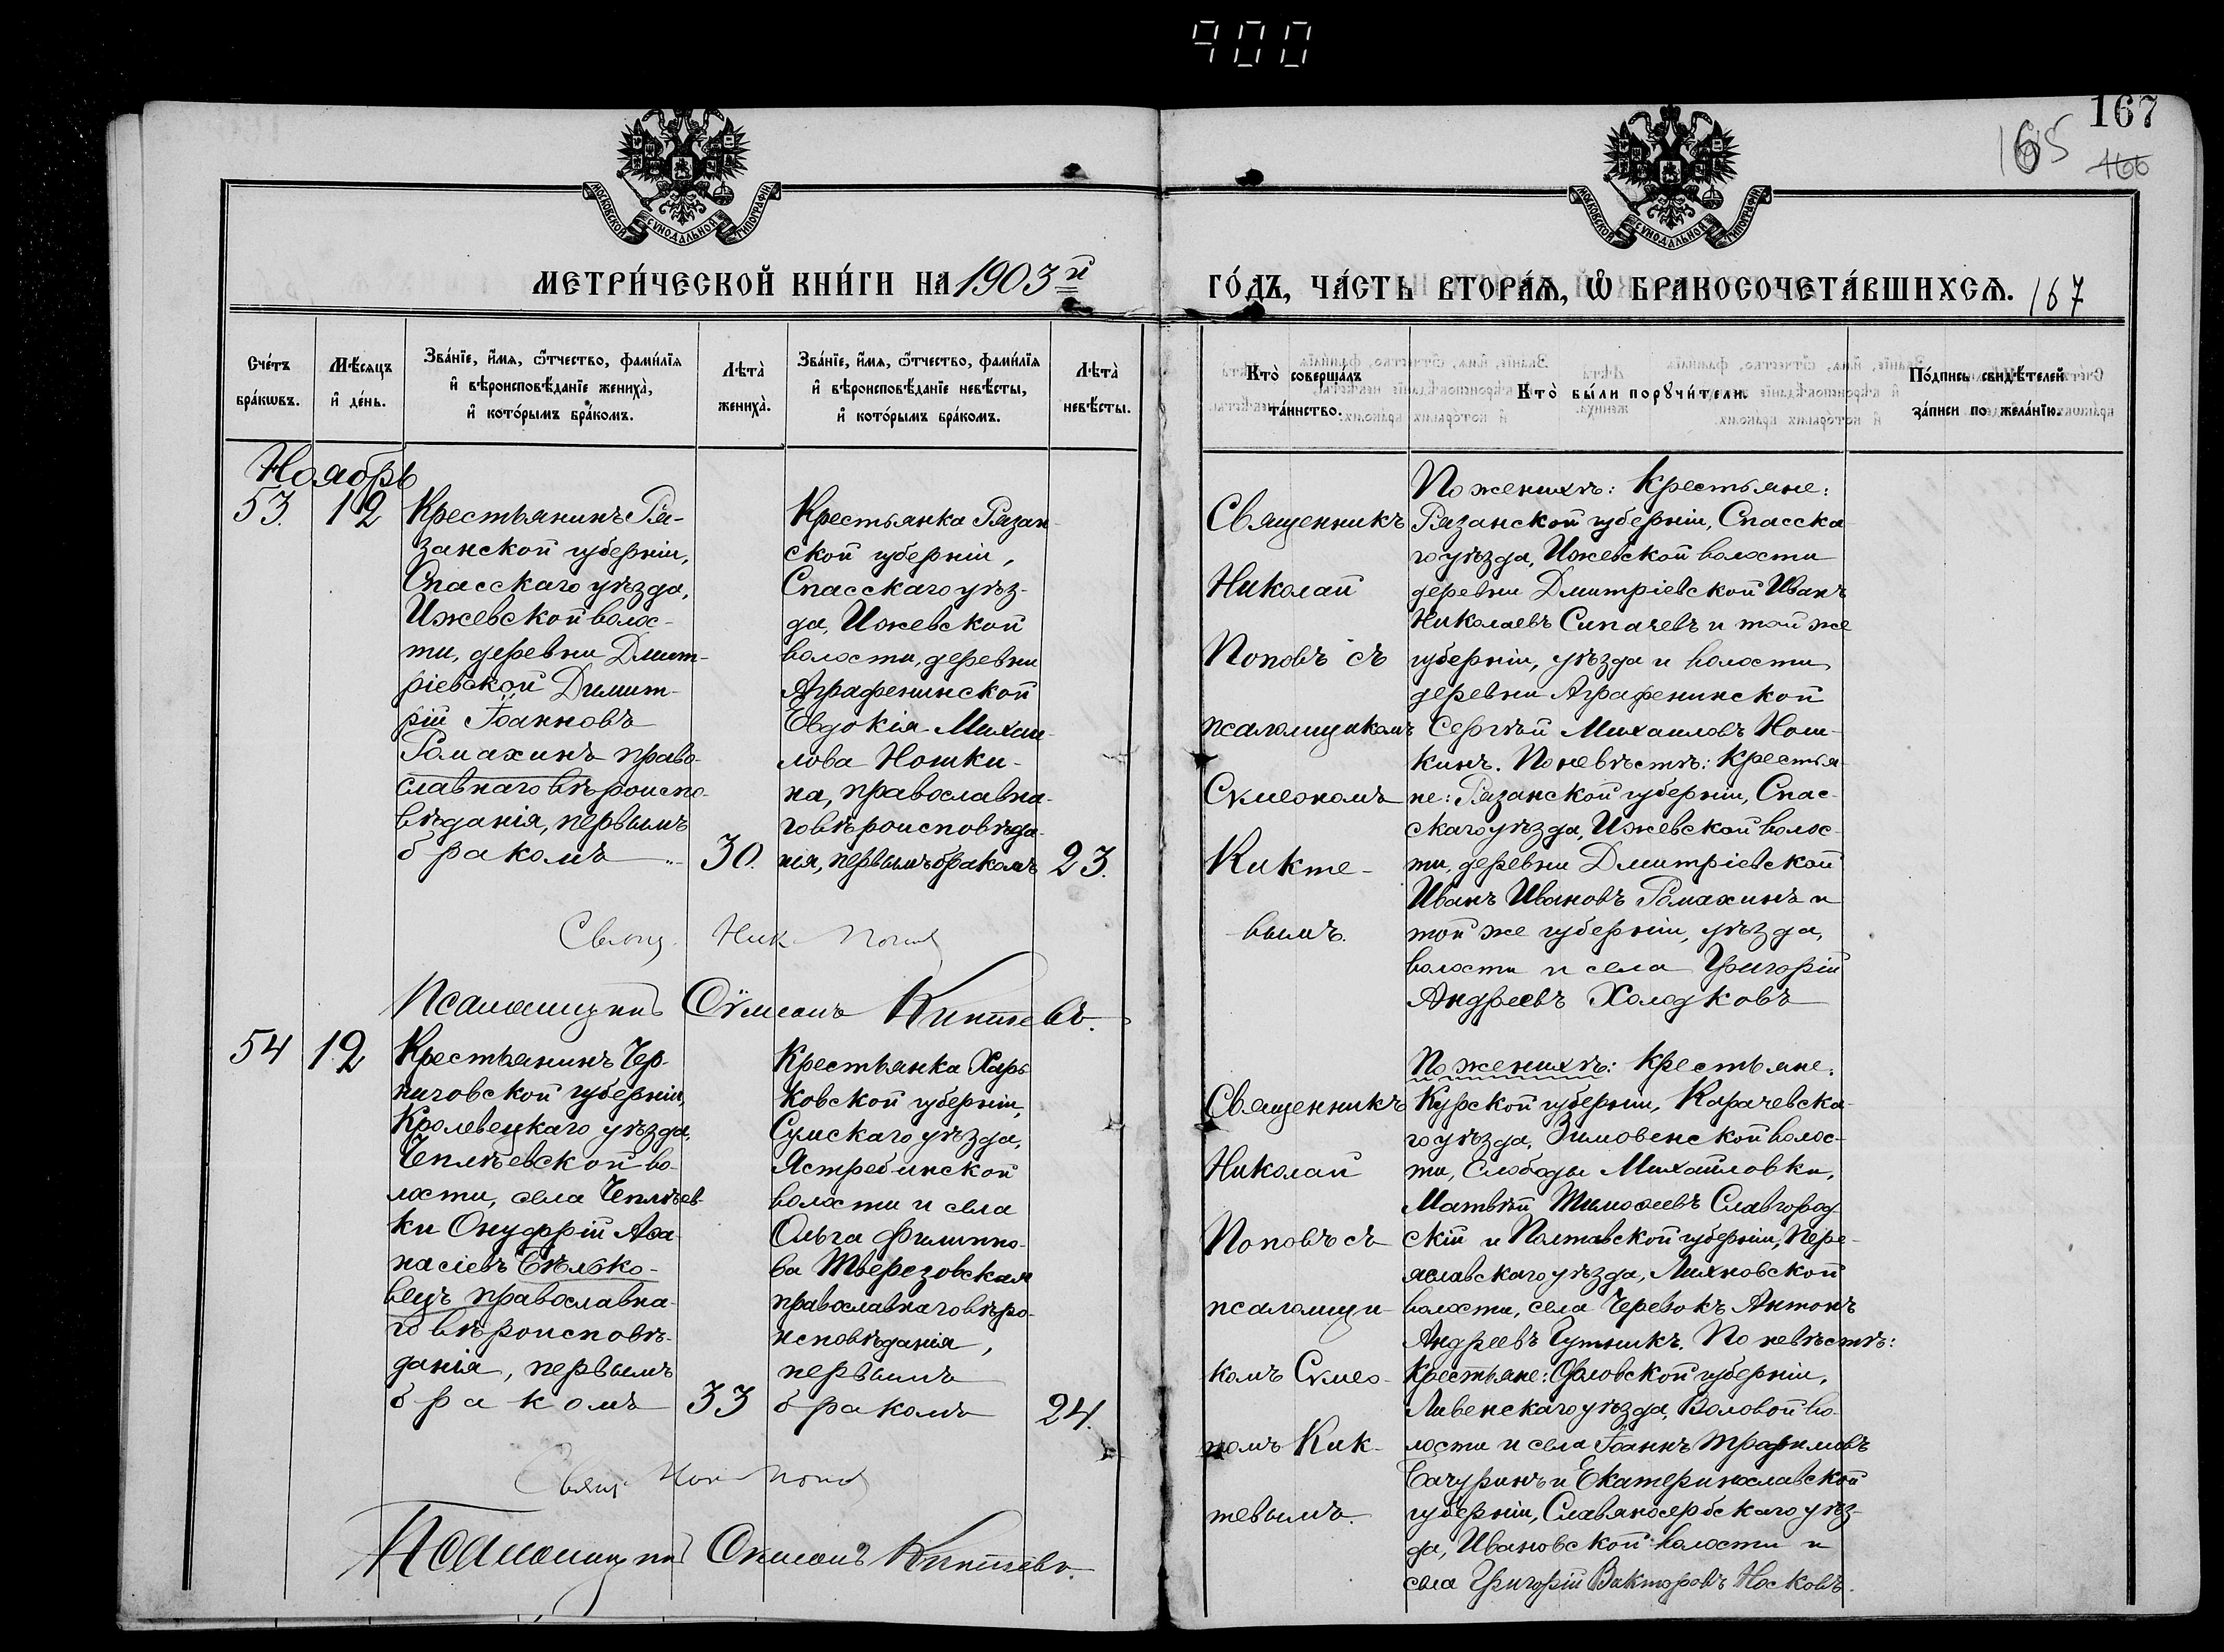 900
167
165
166
МОСКОВСКОЙ СѴНОДАЛЬНОЙ ТИПОГРАФІИ
МОСКОВСКОЙ СѴНОДАЛЬНОЙ ТИПОГРАФІИ
МЕТРИ́ЧЕСКОЙ КНИ́ГИ НА 1903й
ГО́ДЪ, ЧА́СТЬ ВТОРА́Ѧ, Ѡ҆ БРАКОСОЧЕТА́ВШИХСѦ. 167
Сче́тъ
бра́кωвъ.
Мѣ́сяцъ
и҆ де́нь.
Зва́нїе, и҆́мя, ѻ҆́тчество, фами́лїя
и҆ вѣроисповѣ́данїе жениха̀,
и҆ кото́рымъ бра́комъ.
Лѣта̀
жениха̀.
Зва́нїе, и҆́мя, ѻ҆́тчество, фами́лїя
и҆ вѣроисповѣ́данїе невѣ́сты,
и҆ кото́рымъ бра́комъ.
Лѣта̀
невѣ́сты.
Кто̀ соверша́лъ
та́инство.
Кто̀ бы́ли порꙋчи́тели.
По́дпись свидѣ́телей
за́писи по жела́нїю.
Ноябрь
53. 12
Крестьянинъ Ря-
занской губерніи,
Спасскаго уѣзда,
Ижевской волос-
ти, деревни Дмит-
ріевской Димит-
рій Іоанновъ
Ромахинъ право-
славнаго вѣроиспо-
вѣданія, первымъ
бракомъ 30.
Крестьянка Рязан-
ской губерніи,
Спасскаго уѣз-
да, Ижевской
волости, деревни
Аграфенинской
Евдокія Михаи-
лова Ношки-
на, православна-
го вѣроисповѣда-
нія, первымъ бракомъ 23.
Священникъ
Николай
Поповъ съ
псаломщикомъ
Сѵмеономъ
Кикте-
вымъ.
По женихѣ: Крестьяне:
Рязанской губерніи, Спасска-
го уѣзда, Ижевской волости
деревни Дмитріевской Иванъ
Николаевъ Сипачевъ и той же
губерніи, уѣзда и волости
деревни Аграфенинской
Сергѣй Михаиловъ Нош-
кинъ. По невѣстѣ: Крестья-
не: Рязанской губерніи, Спас-
скаго уѣзда, Ижевской волос-
ти, деревни Дмитріевской
Иванъ Ивановъ Ромахинъ и
той же губерніи, уѣзда,
волости и села Григорій
Андреевъ Холодковъ
Свящ. Ник Попов
Псаломщикъ Сѵмеонъ Киктевъ.
54 12
Крестьянинъ Чер-
ниговской губерніи,
Кролевецкаго уѣзда,
Чеплѣевской во-
лости, села Чеплѣев-
ки Онуфрій Аѳа-
насіевъ Бѣлко-
вецъ православна-
го вѣроисповѣ-
данія, первымъ
бракомъ 33
Крестьянка Харь-
ковской губерніи,
Сумскаго уѣзда,
Ястребинской
волости и села
Ольга Филиппо-
ва Тверезовская
православнаго вѣро-
исповѣданія,
первымъ
бракомъ 24.
Священникъ
Николай
Поповъ съ
псаломщи-
комъ Сѵмео-
номъ Кик-
тевымъ.
По женихѣ: Крестьяне:
Курской губерніи, Карачевска-
го уѣзда, Зимовенской волос-
ти, Слободы Михаиловки,
Матвѣй Тимоѳеевъ Славгород-
скій и Полтавской губерніи, Пере-
яславскаго уѣзда, Ляхновской
волости, села Черевокъ Антонъ
Андреевъ Гутникъ. По невѣстѣ:
Крестьяне: Орловской губерніи,
Ливенскаго уѣзда, Воловой во-
лости и села Іоаннъ Трофимовъ
Бачуринъ и Екатеринославской
губерніи, Славяносербскаго уѣз-
да, Ивановской волости и
села Григорій Викторовъ Носковъ.
Свящ Ник Попов
Псаломщикъ Сѵмеонъ Киктевъ.